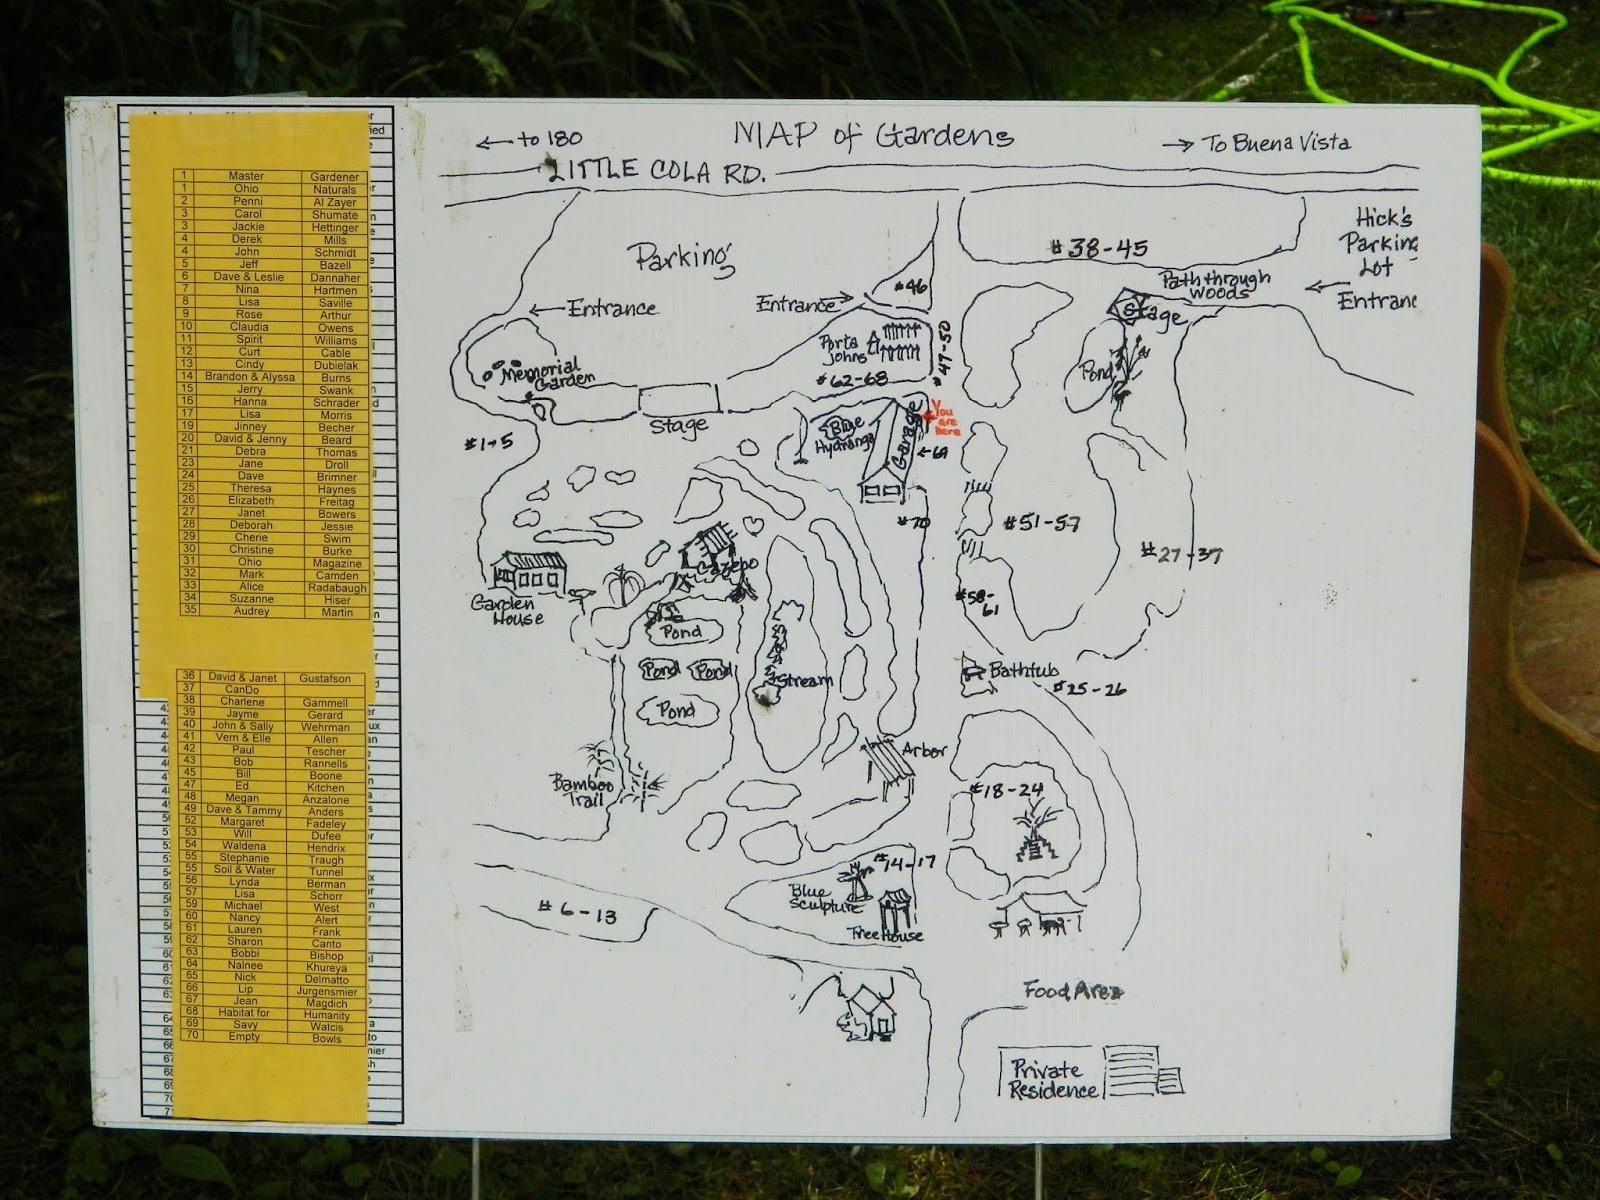 MAP of Gardens
← to 180
→ To Buena Vista
LITTLE COLA RD.
Parking
Hick's
Parking
Lot
← Entrance
#38-45
#46
Path through
Woods
Stage
← Entrance
Entrance →
Porta
Johns
#47-50
#62-68
Pond
Memorial
Garden
Stage
#1-5
Blue
Hydranga
Garage
You
are
here
←69
#70
#51-57
#27-37
Gazebo
Garden
House
#58-
61
Pond
Pond
Pond
Pond
Stream
Bathtub
#25-26
Arbor
Bamboo
Trail
#18-24
#14-17
Blue
Sculpture
Tree House
#6-13
Food Area
Private
Residence
1 Master Gardener
1 Ohio Naturals
2 Penni Al Zayer
3 Carol Shumate
3 Jackie Hettinger
4 Derek Mills
4 John Schmidt
5 Jeff Bazell
6 Dave & Leslie Dannaher
7 Nina Hartmen
8 Lisa Saville
9 Rose Arthur
10 Claudia Owens
11 Spirit Williams
12 Curt Cable
13 Cindy Dubielak
14 Brandon & Alyssa Burns
15 Jerry Swank
16 Hanna Schrader
17 Lisa Morris
19 Jinney Becher
20 David & Jenny Beard
21 Debra Thomas
23 Jane Droll
24 Dave Brimner
25 Theresa Haynes
26 Elizabeth Freitag
27 Janet Bowers
28 Deborah Jessie
29 Cherie Swim
30 Christine Burke
31 Ohio Magazine
32 Mark Camden
33 Alice Radabaugh
34 Suzanne Hiser
35 Audrey Martin
36 David & Janet Gustafson
37 CanDo
38 Charlene Gammell
39 Jayme Gerard
40 John & Sally Wehrman
41 Vern & Elle Allen
42 Paul Tescher
43 Bob Rannells
45 Bill Boone
47 Ed Kitchen
48 Megan Anzalone
49 Dave & Tammy Anders
52 Margaret Fadeley
53 Will Dufee
54 Waldena Hendrix
55 Stephanie Traugh
55 Soil & Water Tunnel
56 Lynda Berman
57 Lisa Schorr
59 Michael West
60 Nancy Alert
61 Lauren Frank
62 Sharon Canto
63 Bobbi Bishop
64 Nalnee Khureya
65 Nick Delmatto
66 Lip Jurgensmier
67 Jean Magdich
68 Habitat for Humanity
69 Savy Watcis
70 Empty Bowls